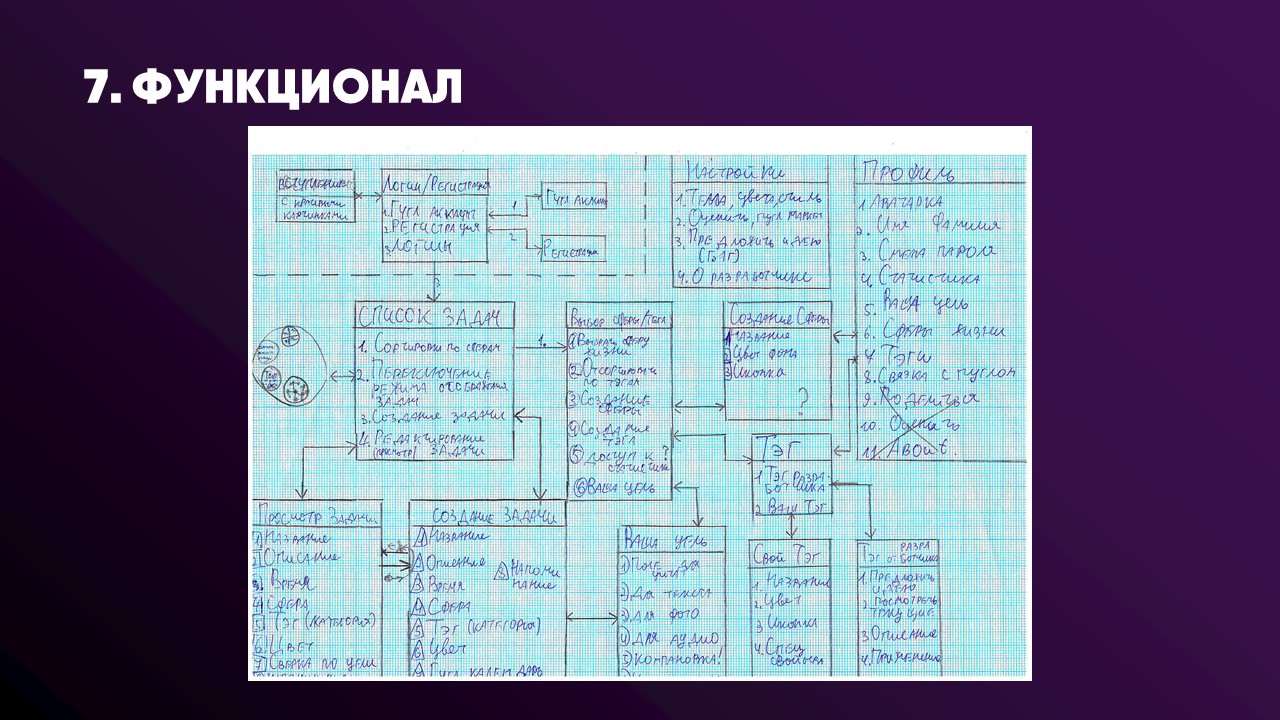 7. ФУНКЦИОНАЛ
Вступление
с красивыми
картинками
Логин/Регистрация
1. Гугл аккаунт
2. Регистрация
3. Логин
1
Гугл аккаунт
2
Регистрация
3
Настройки
1. Тема, цвета, стиль
2. Оценить, гугл маркет
3. Предложить идею
4. О разработчике
Профиль
1 Аватарка
2. Имя Фамилия
3. Смена пароля
4. Статистика
5. Ваша цель
6. Сферы жизни
7 Тэги
8. Связка с гуглом
9. Поделиться
10.
11. About.
Список задач
1. Сортировка по сферам
2. Переключение
режима отображения
задач
3. Создание задачи
4. Редактирование
(просмотр) задачи
1.
Выбор сферы/тега
1 Выбрать сферу
жизни
2 Отсортировать
по тэгам
3 Создание
сферы
4 Создание
тэга
5 Доступ к ?
статистике
6 Ваша цель
Создание сферы
1 Название
2 Цвет фона
3 Иконка
?
Тэг
1 Тэг разра-
ботчика
2 Ваш тэг
Просмотр задачи
1 Название
2 Описание
3 Время
4 Сфера
5 Тэг (категория)
6 Цвет
7 Сверка по цели
Создание задачи
1 Название
2 Описание
8 Напоми
нание
3 Время
4 Сфера
5 Тэг (категория)
6 Цвет
7 Гугл календарь
Ваша цель
1) Поле для
2) Для текста
3) Для фото
4) Для аудио
5) Компановка!
Свой тэг
1. Название
2. Цвет
3 Иконка
4. Спец
свойства
Тэг от разработчика
1. Предложить
идею
2. Посмотреть
текущие
3 Описание
4. Применение